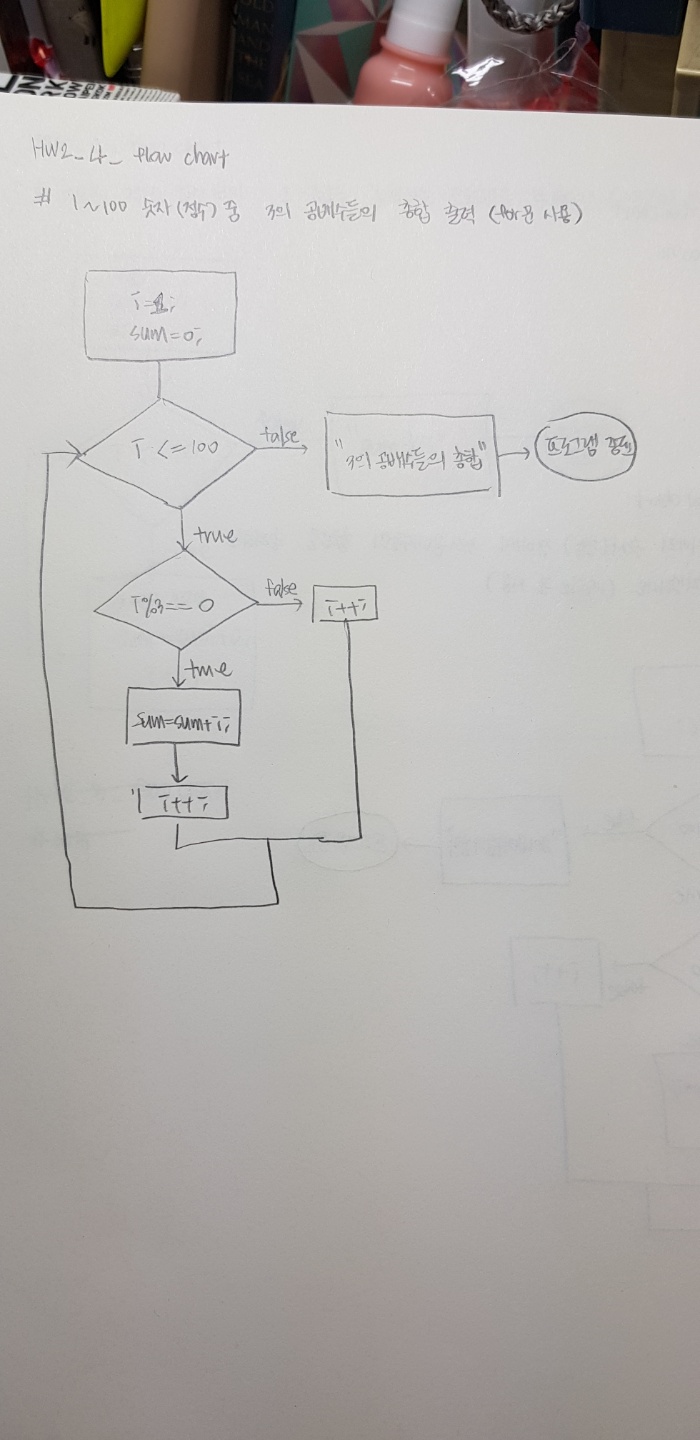 HW2_4_ flow chart
# 1~100 숫자(정수) 중 3의 공배수들의 총합 출력 (for문 사용)
i=1;
sum=0;
i <=100
false
"3의 공배수들의 총합"
프로그램 종료
true
i%3==0
false
i++;
true
sum=sum+i;
i++;